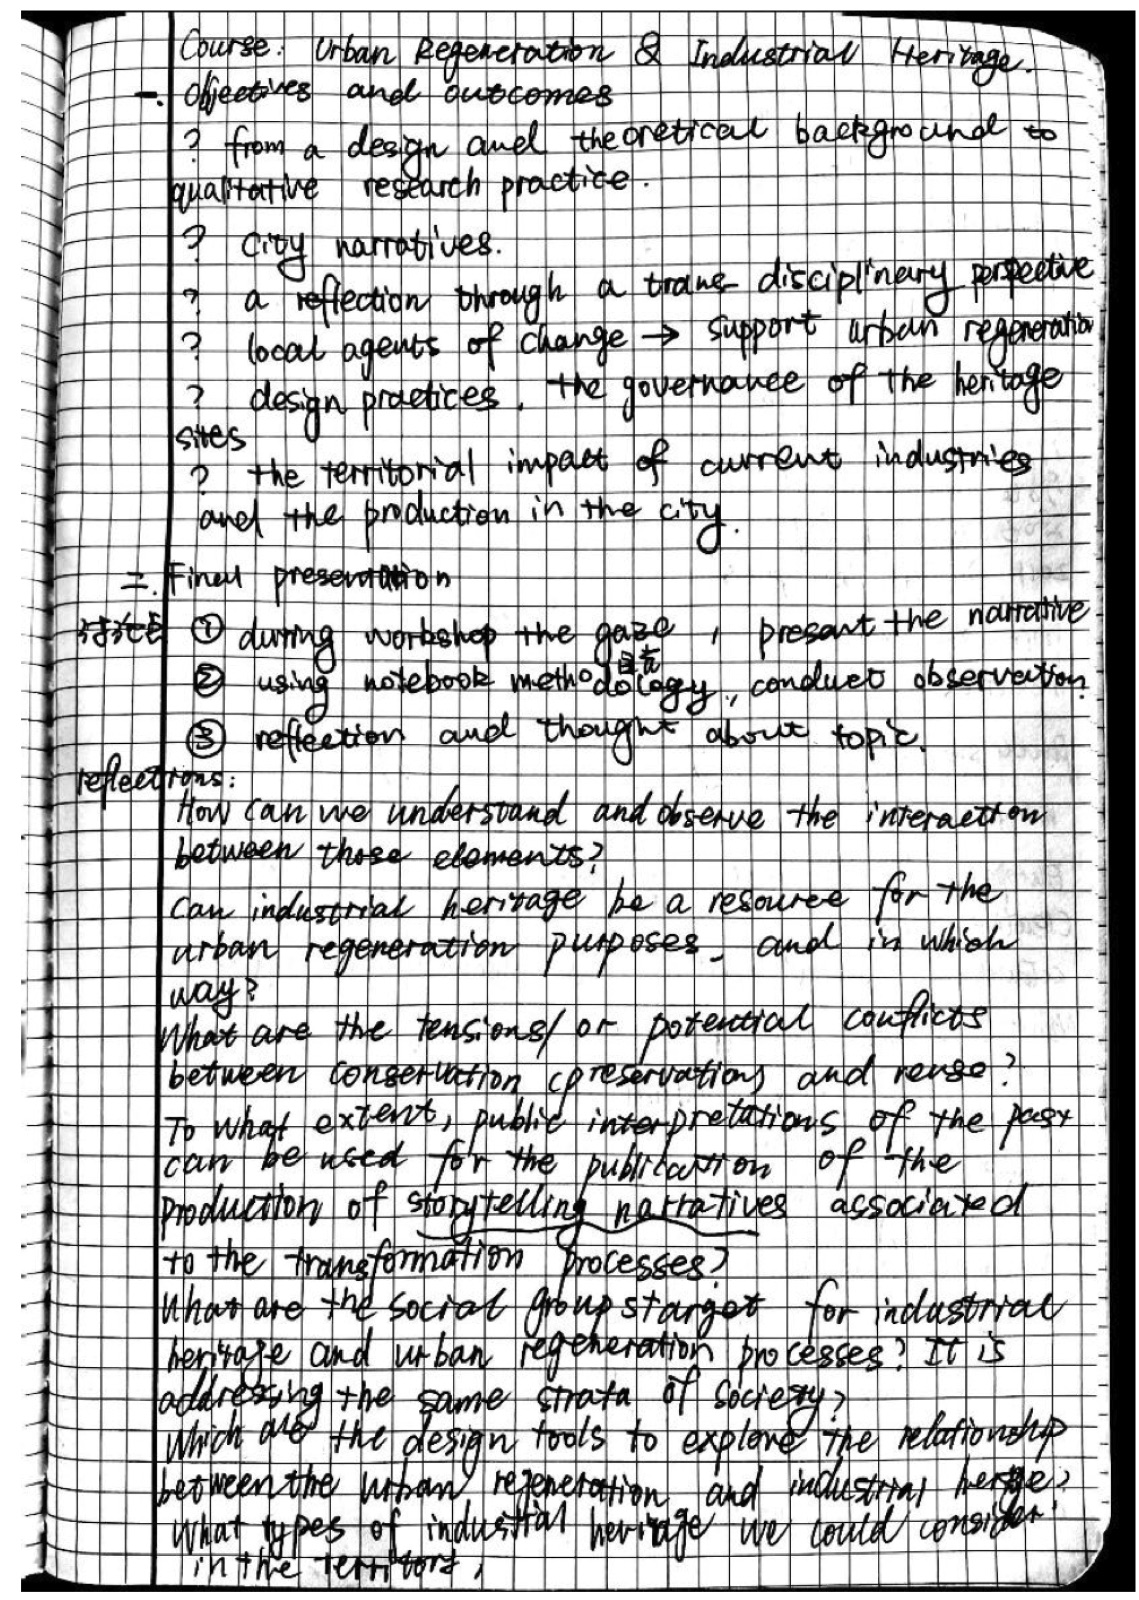 Course: Urban Regeneration & Industrial Heritage.
一. Objectives and outcomes
? from a design and theoretical background to
qualitative research practice.
? city narratives.
? a reflection through a trans-disciplinary perspective
? local agents of change → support urban regeneration
? design practices, the governance of the heritage
sites
? the territorial impact of current industries
and the production in the city.
二. Final presentation
讨论 ① during workshop the gaze, present the narrative
② using notebook methodology, conduct observation
③ reflection and thought about topic.
reflections:
How can we understand and observe the interaction
between those elements?
Can industrial heritage be a resource for the
urban regeneration purposes - and in which
way?
What are the tensions/or potential conflicts
between conservation (preservation) and reuse?
To what extent, public interpretations of the past
can be used for the publication of the
production of storytelling narratives associated
to the transformation processes?
What are the social groups target for industrial
heritage and urban regeneration processes? It is
addressing the same strata of society?
Which are the design tools to explore the relationship
between the urban regeneration and industrial
What types of industrial heritage we could consider
in the territory,